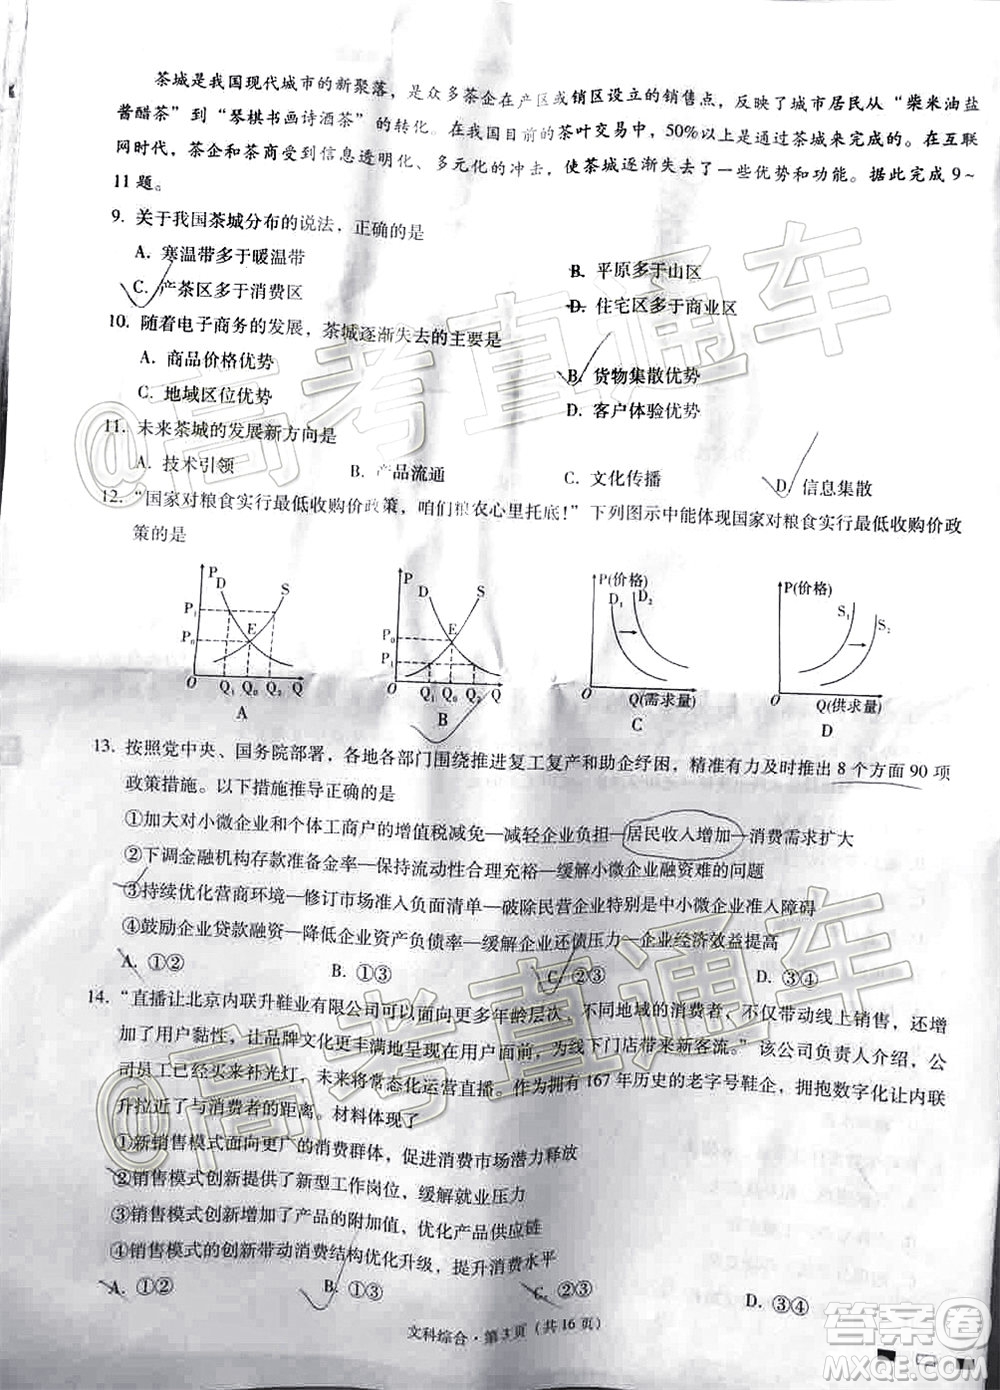 茶城是我国现代城市的新聚落，是众多茶企在产区或销区设立的销售点，反映了城市居民从“柴米油盐
酱醋茶”到“琴棋书画诗酒茶”的转化。在我国目前的茶叶交易中，50%以上是通过茶城来完成的。在互联
网时代，茶企和茶商受到信息透明化、多元化的冲击，使茶城逐渐失去了一些优势和功能。据此完成9～
11题。
9. 关于我国茶城分布的说法，正确的是
A. 寒温带多于暖温带 B. 平原多于山区
C. 产茶区多于消费区 D. 住宅区多于商业区
10. 随着电子商务的发展，茶城逐渐失去的主要是
A. 商品价格优势 B. 货物集散优势
C. 地域区位优势 D. 客户体验优势
11. 未来茶城的发展新方向是
A. 技术引领 B. 产品流通 C. 文化传播 D. 信息集散
12. “国家对粮食实行最低收购价政策，咱们粮农心里托底！”下列图示中能体现国家对粮食实行最低收购价政
策的是
P D S P₁ P₀ E O Q₁ Q₀ Q₂ Q
A
P D S P₀ P₁ E O Q₁ Q₀ Q₂ Q
B
P(价格) D₁ D₂ O Q(需求量)
C
P(价格) S₁ S₂ O Q(供求量)
D
13. 按照党中央、国务院部署，各地各部门围绕推进复工复产和助企纾困，精准有力及时推出8个方面90项
政策措施。以下措施推导正确的是
①加大对小微企业和个体工商户的增值税减免—减轻企业负担—居民收入增加—消费需求扩大
②下调金融机构存款准备金率—保持流动性合理充裕—缓解小微企业融资难的问题
③持续优化营商环境—修订市场准入负面清单—破除民营企业特别是中小微企业准入障碍
④企业贷款融资—降低企业资产负债率—缓解企业还债压力—企业经济效益提高
A. ①② B. ①③ C. ②③ D. ③④
14. “直播让北京内联升鞋业有限公司可以面向更多年龄层次、不同地域的消费者，不仅带动线上销售，还增
加了用户黏性，让品牌文化更丰满地呈现在用户面前，为线下门店带来新客流。”该公司负责人介绍，公
司员工已购买来补光灯，未来将常态化运营直播。作为拥有167年历史的老字号鞋企，拥抱数字化让内联
升拉近了与消费者的距离。材料体现了
①新销售模式面向更广的消费群体，促进消费市场潜力释放
②销售模式创新提供了新型工作岗位，缓解就业压力
③销售模式创新增加了产品的附加值，优化产品供应链
④销售模式的创新带动消费结构优化升级，提升消费水平
A. ①② B. ①③ C. ②③ D. ③④
文科综合·第3页（共16页）
@高考直通车
@高考直通车
答案圈
MXQE.COM